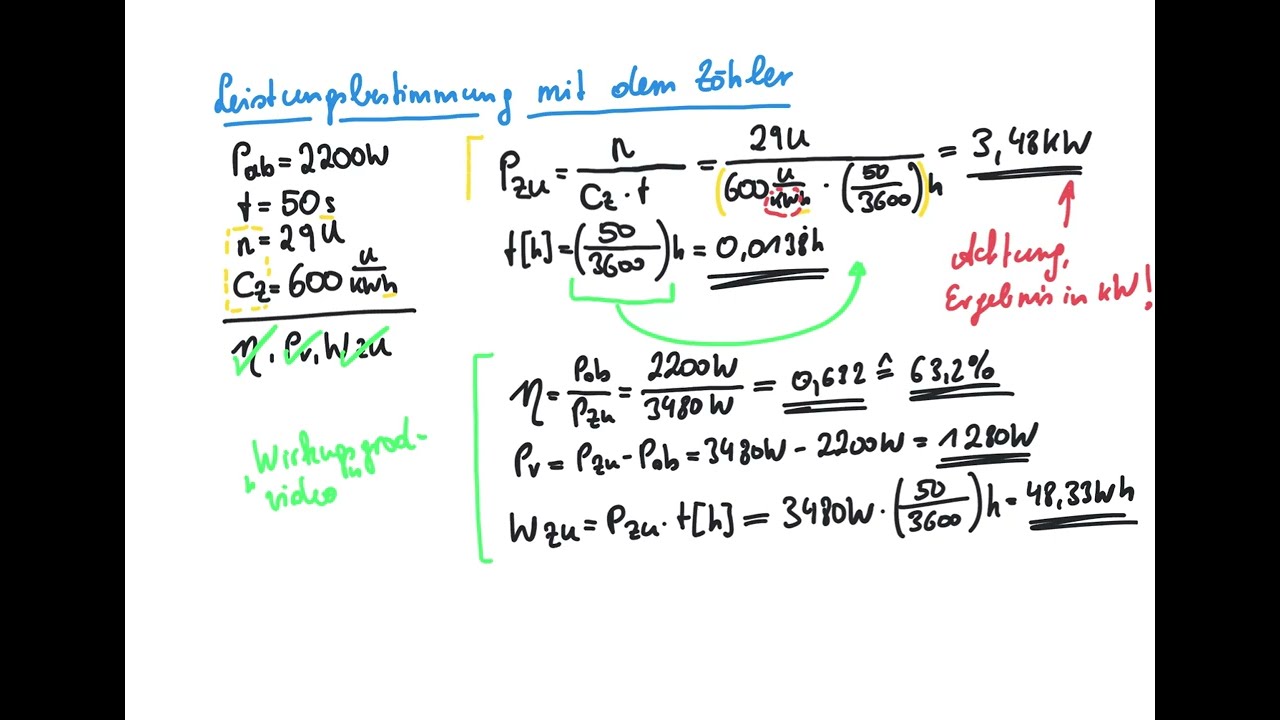 Leistungsbestimmung mit dem Zähler
Pab = 2200W
t = 50s
n = 29U
Cz = 600 U/kWh
η, Pv, Wzu
Pzu = n / (Cz · t) = 29U / (600 U/kWh · (50/3600)h) = 3,48kW
t[h] = (50/3600)h = 0,0138h
Achtung,
Ergebnis in kW!
η = Pab/Pzu = 2200W/3480W = 0,632 ≙ 63,2%
Pv = Pzu - Pab = 3480W - 2200W = 1280W
Wzu = Pzu · t[h] = 3480W · (50/3600)h = 48,33Wh
"Wirkungsgrad-
video"